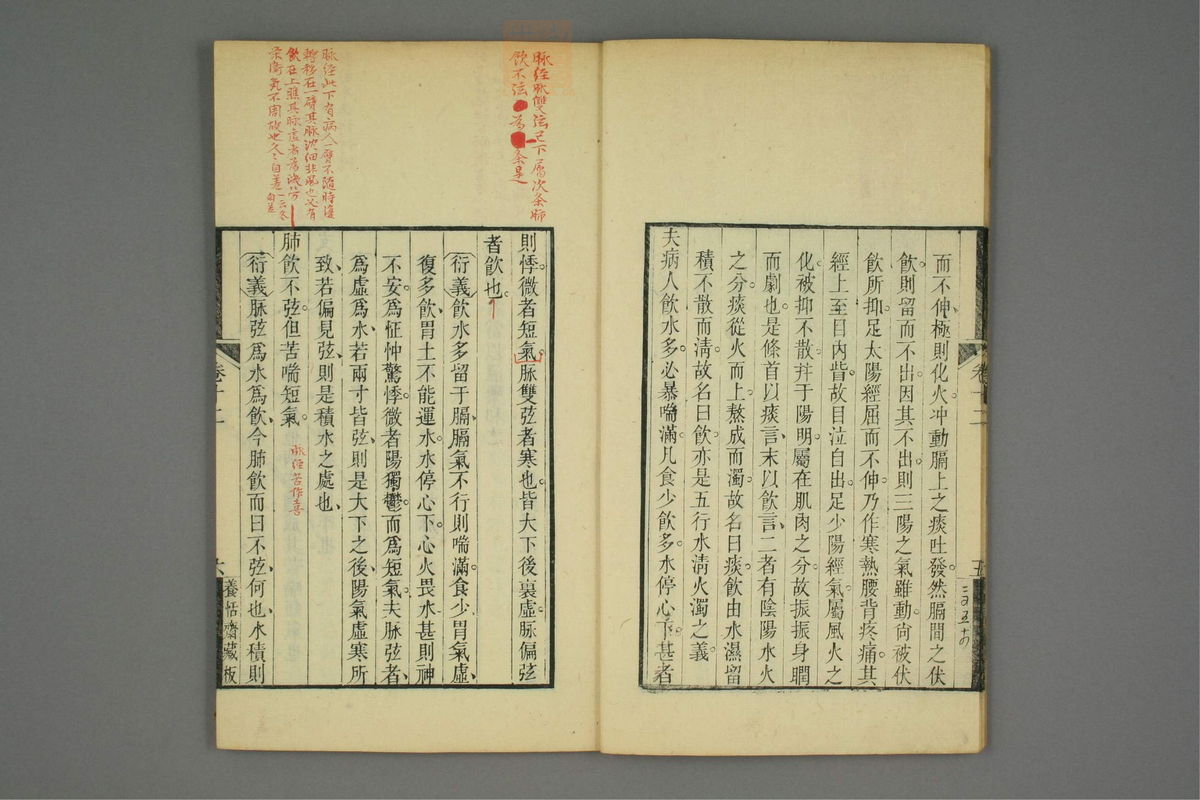 而不伸極則化火冲動膈上之痰吐發然膈間之伏
飲則留而不出因其不出則三陽之氣雖動尚被伏
飲所抑足太陽經屈而不伸乃作寒熱腰背疼痛其
經上至目內眥故目泣自出足少陽經氣屬風火之
化被抑不散并于陽明屬在肌肉之分故振振身瞤
而劇也是條首以痰言末以飲言二者有陰陽水火
之分痰從火而上熬成而濁故名曰痰飲由水濕留
積不散而清故名曰飲亦是五行水清火濁之義
夫病人飲水多必暴喘滿凡食少飲多水停心下甚者
卷十二
五
脉经脉雙弦已下層次条肺
飲不弦
为
条是
則悸微者短氣脈雙弦者寒也皆大下後裏虛脈偏弦
者飲也
衍義飲水多留于膈膈氣不行則喘滿食少胃氣虛
復多飲胃土不能運水水停心下心火畏水甚則神
不安為怔忡驚悸微者陽獨鬱而為短氣夫脈弦者
為虛為水若兩寸皆弦則是大下之後陽氣虛寒所
致若偏見弦則是積水之處也
脉经此下有病人一臂不隨時復
轉移在一臂其脉沈细非風也又有
飲在上焦其脉虛者為
榮衛氣不周故也久久自差一云冬
自差
肺飲不弦但苦喘短氣
脉经苦作喜
衍義脈弦為水為飲今肺飲而曰不弦何也水積則
卷十二
六
養恬齋藏板